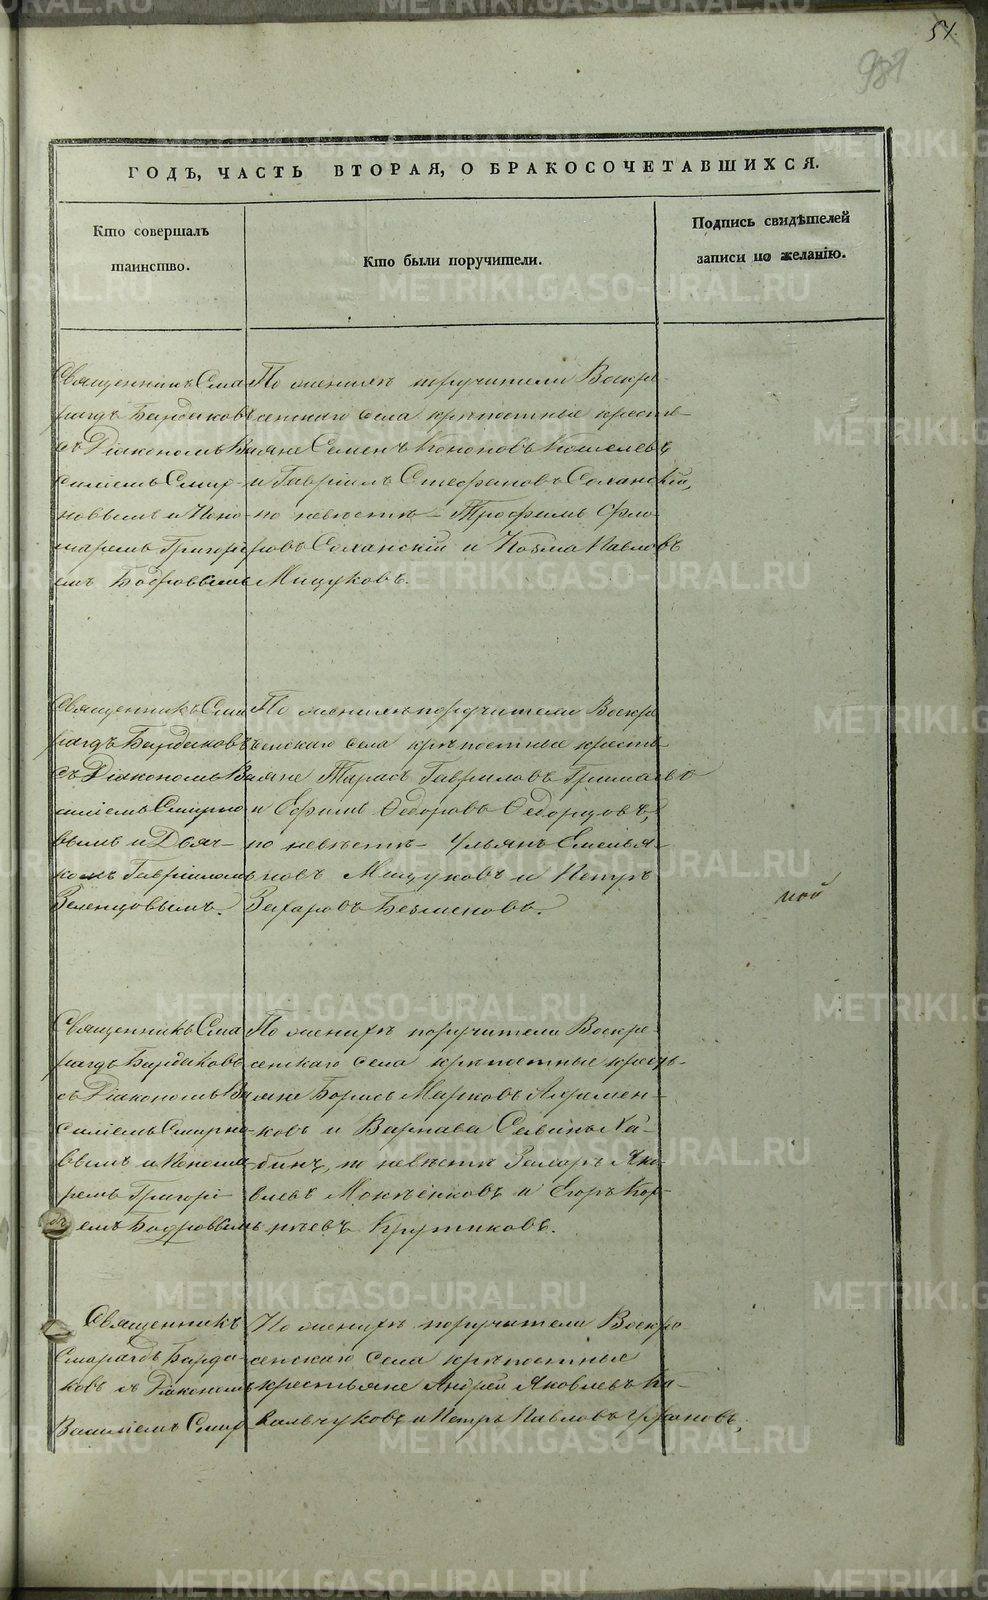 51.
989
ГОДЪ, ЧАСТЬ ВТОРАЯ, О БРАКОСОЧЕТАВШИХСЯ.
Кто совершалъ
таинство.
Кто были поручители.
Подпись свидѣтелей
записи по желанію.
Священникъ Сма
рагдъ Бардаковъ
съ Діакономъ Ва
силіемъ Смир-
новымъ и Поно-
маремъ Григорі
емъ Бобровымъ
По женихѣ поручители Воскре-
сенскаго села крѣпостные кресть-
яне Семенъ Кононовъ Кошелевъ
и Гавріилъ Стефановъ Солянскій,
по невѣстѣ Трофимъ Фло-
ровъ Солянскій и Козма Павловъ
Мицуковъ.
Священникъ Сма
рагдъ Бардаковъ
съ Діакономъ Ва
силіемъ Смирно
вымъ и Дьяч-
комъ Гавріиломъ
Зеленцовымъ.
По женихѣ поручители Воскре
сенскаго села крѣпостные кресть-
яне Тарасъ Гавриловъ
и Ефимъ Ѳедоровъ Ѳедорцовъ,
по невѣстѣ Ульянъ Емелья-
новъ Мицуковъ и Петръ
Захаровъ Безменовъ.
Священникъ Сма
рагдъ Бардаковъ
съ Діакономъ Ва
силіемъ Смирно
вымъ и Понома
ремъ Григорі-
емъ Бобровымъ
По женихѣ поручители Воскре-
сенскаго села крѣпостные кресть-
яне Борисъ Марковъ
ковъ и Варнава Савинъ Ха-
бинъ, по невѣстѣ Захаръ Яко-
влевъ и Егоръ Кор-
нѣевъ Крутиковъ.
Священникъ
Смарагдъ Барда-
ковъ съ Діакономъ
Василіемъ Смир-
По женихѣ поручители Воскре-
сенскаго села крѣпостные
крестьяне Андрей Яковлевъ Ко-
вальчуковъ и Петръ Павловъ
METRIKI.GASO-URAL.RU